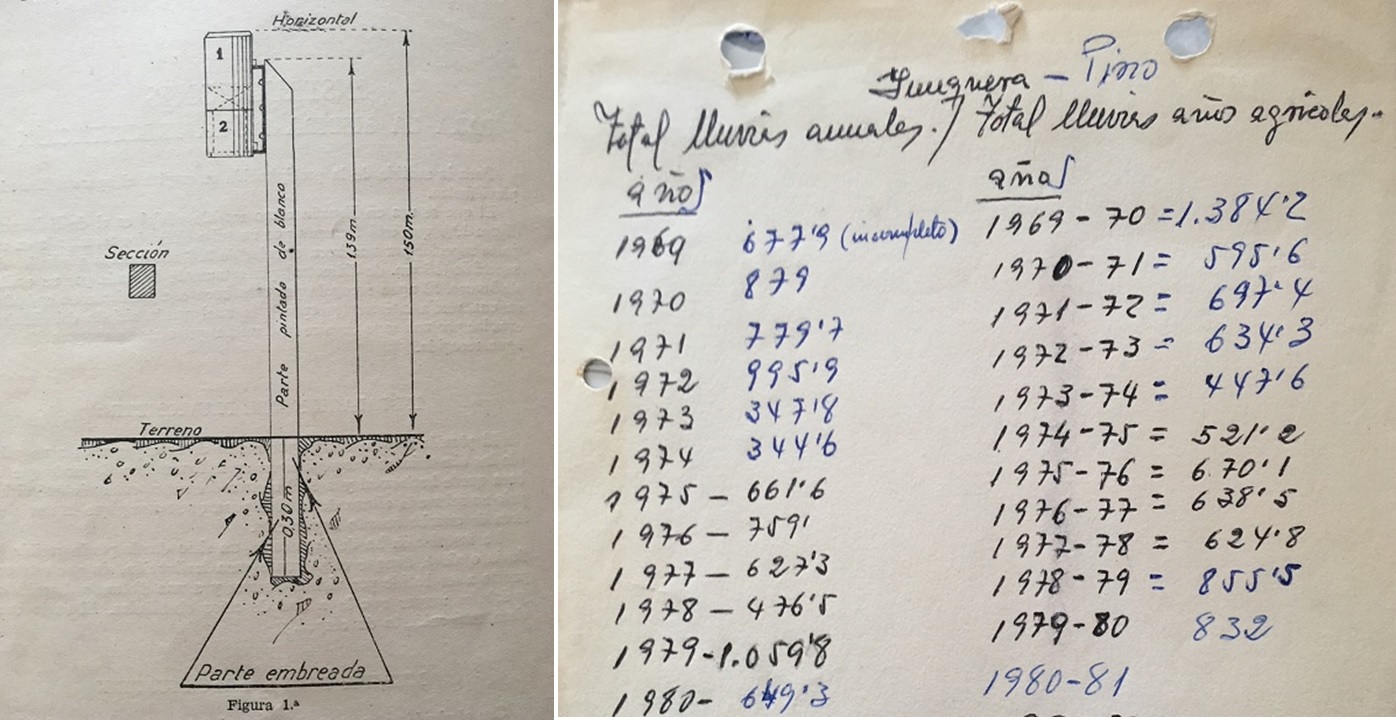 Horizontal
1
2
Sección
Parte pintado de blanco
1.39m.
1.50m.
Terreno
0.30m
Parte embreada
Figura 1.ª
Junquera - Pino
Total lluvias anuales. / Total lluvias años agrícolas.
años
1969 677'9 (incompleto)
1970 879
1971 779'7
1972 995'9
1973 347'8
1974 344'6
1975 - 661'6
1976 - 759'
1977 - 627'3
1978 - 476'5
1979-1.059'8
1980- 649'3
años
1969-70 =1.384'2
1970-71= 595'6
1971-72= 697'4
1972-73= 634'3
1973-74= 447'6
1974-75 = 521'2
1975-76 = 670'1
1976-77= 638'5
1977-78 = 624'8
1978-79 = 855'5
1979-80 832
1980-81